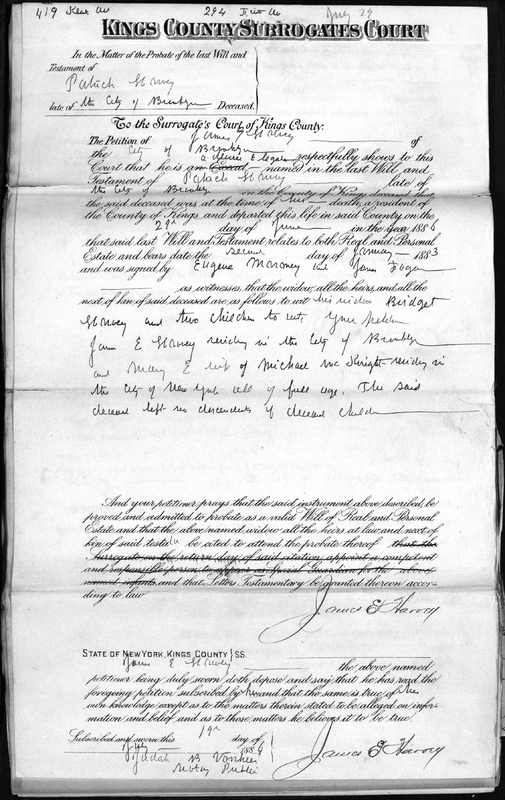 419 Kent Av 294 First Av July 29
KINGS COUNTY SURROGATES COURT
In the Matter of the Probate of the last Will and
Testament of
Patrick Harvey
late of the City of Brooklyn Deceased.
To the Surrogate's Court of Kings County:
The Petition of James E Harvey of
the City of Brooklyn respectfully shows to this
Court that he is named in the last Will and
Testament of Patrick Harvey late of
the City of Brooklyn in the County of Kings, deceased, that
the said deceased was at the time of his death, a resident of
the County of Kings, and departed this life in said County on the
day of June in the year 188
that said last Will and Testament relates to both Real and Personal
Estate and bears date the second day of January 1883
and was signed by Eugene Maroney and
as witnesses, that the widow, all the heirs, and all the
next of kin of said deceased are as follows to wit his widow Bridget
Harvey and two children to wit, your petitioner
James E Harvey residing in the City of Brooklyn
and Mary E wife of Michael Mc Knight residing in
the City of New York all of full age. The said
deceased left no descendents of deceased children
And your petitioner prays that the said instrument above described, be
proved and admitted to probate as a valid Will of Real and Personal
Estate and that the above named widow all the heirs at law and next of
kin of said testator be cited to attend the probate thereof that the
Surrogate on the return day of said citation appoint a competent
and responsible person to appear as Special Guardian for the above
named infants and that Letters Testamentary be granted thereon accor-
ding to law
James E Harvey
STATE OF NEW YORK, KINGS COUNTY } SS.
James E Harvey the above named
petitioner being duly sworn doth depose and say that he has read the
foregoing petition subscribed by and that the same is true of his
own knowledge except as to the matters therein stated to be alleged on infor-
mation and belief and as to those matters he believes it to be true
Subscribed and sworn this day of
July 188
Judah B Voorhees
Notary Public
James E Harvey